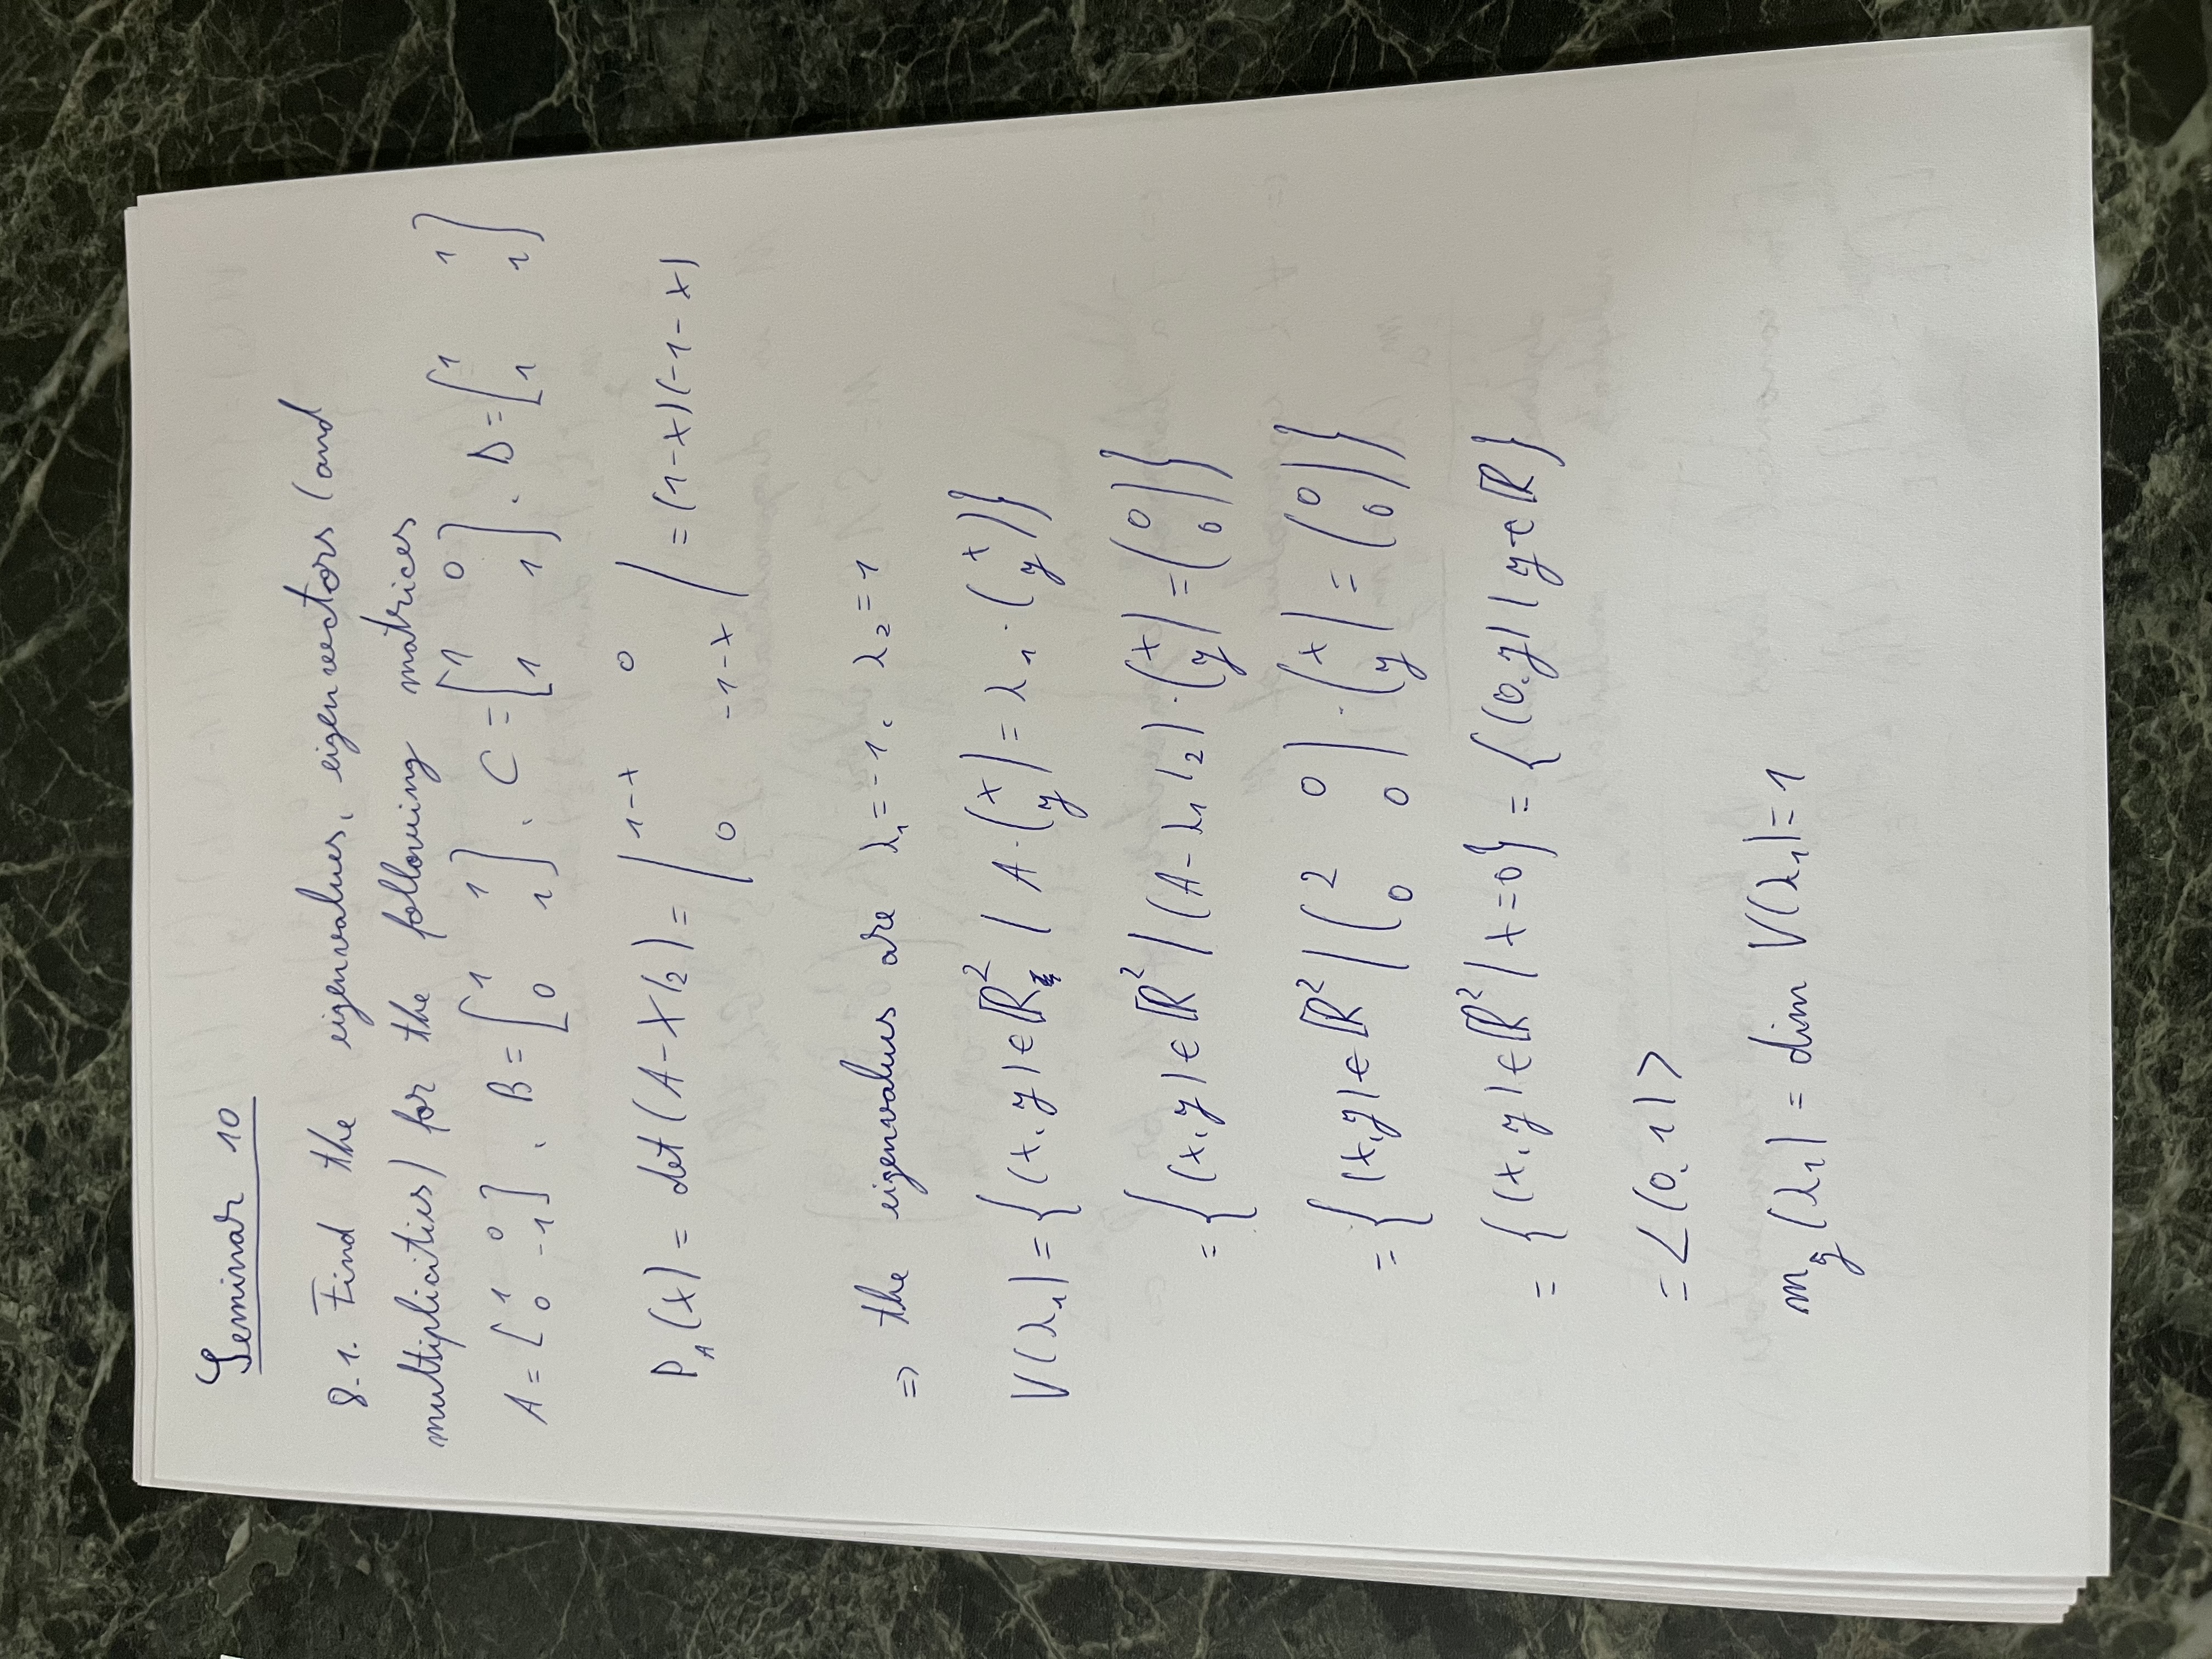 Seminar 10
8.1. Find the eigenvalues, eigenvectors (and
multiplicities) for the following matrices
A = [1 0; 0 -1], B = [1 1; 0 1], C = [1 0; 1 1], D = [1 1; 1 1]
P_A(X) = det(A - X I_2) = |1-X 0; 0 -1-X| = (1-X)(-1-X)
⇒ the eigenvalues are λ_1 = -1, λ_2 = 1
V(λ_1) = {(x, y) ∈ ℝ^2 | A · (x; y) = λ_1 · (x; y)}
= {(x, y) ∈ ℝ^2 | (A - λ_1 I_2) · (x; y) = (0; 0)}
= {(x, y) ∈ ℝ^2 | (2 0; 0 0) · (x; y) = (0; 0)}
= {(x, y) ∈ ℝ^2 | x = 0} = {(0, y) | y ∈ ℝ}
= <(0, 1)>
m_g(λ_1) = dim V(λ_1) = 1